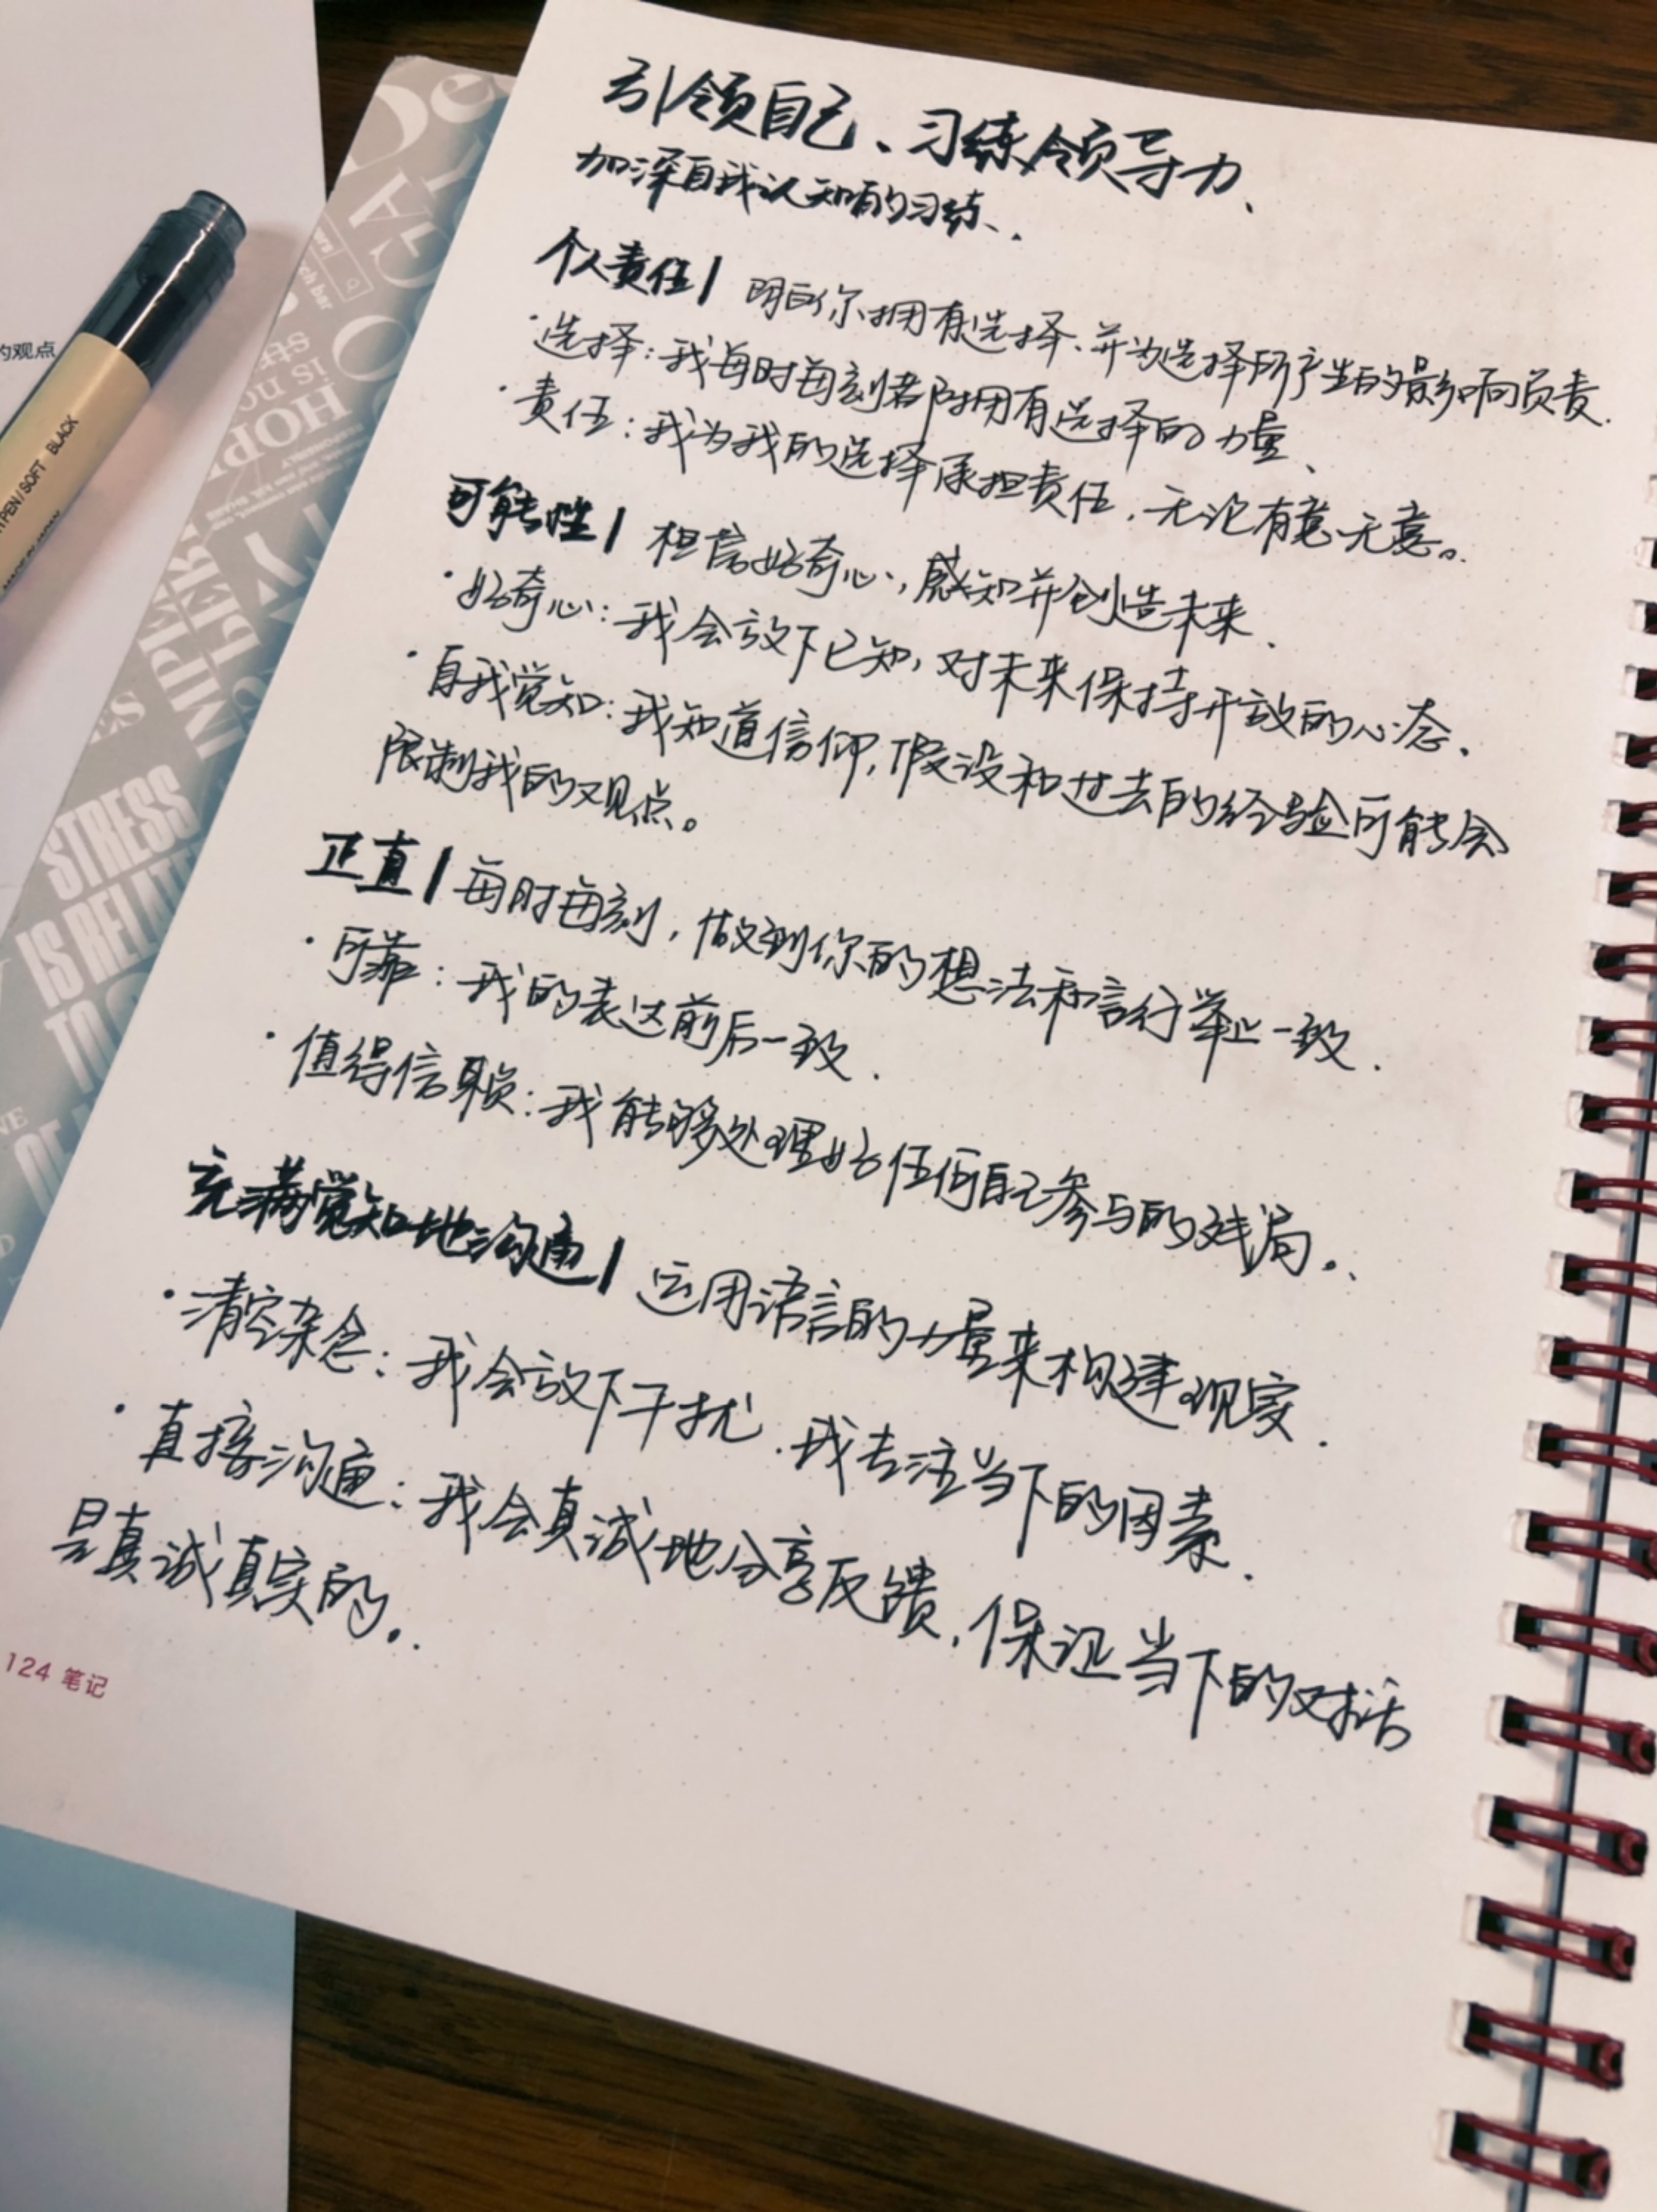 引领自己、习练领导力、
加深自我认知的习练、.
个人责任| 明白你拥有选择、并为选择所产生的影响负责.
·选择：我每时每刻都拥有选择的力量、
·责任：我为我的选择承担责任，无论有意无意。
可能性| 相信好奇心，感知并创造未来.
·好奇心：我会放下已知，对未来保持开放的心态.
·自我觉知：我知道信仰，假设和过去的经验可能会
限制我的观点。
正直| 每时每刻，做到你的想法和言行举止一致.
·可靠：我的表达前后一致.
·值得信赖：我能够处理好任何自己参与的残局..
充满觉知地沟通| 运用语言的力量来构建现实.
·清空杂念：我会放下干扰.我专注当下的因素.
·直接沟通：我会真诚地分享反馈，保证当下的对话
是真诚真实的..
124 笔记
的观点
PEN/SOFT BLACK
STRESS
IS RELAT
HOPE
IS